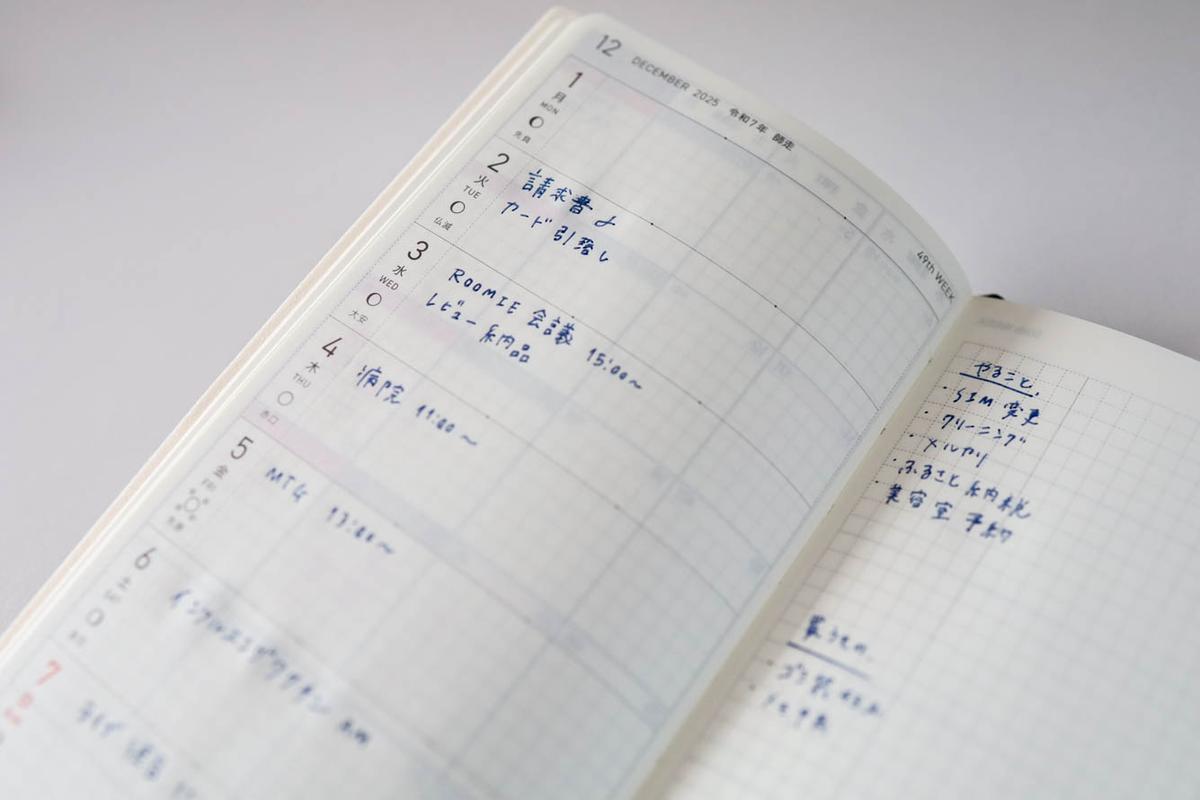 12 DECEMBER 2025 令和7年 師走
49th WEEK
1
月
MON
先負
2
火
TUE
仏滅
請求書
カード引落し
3
水
WED
大安
ROOMIE 会議 15:00〜
レビュー納品
4
木
THU
赤口
病院 11:00〜
5
金
FRI
MTG 13:00〜
6
土
インフルエンザワクチン
7
ライブ
やること
・SIM 変更
・クリーニング
・メルカリ
・ふるさと納税
美容室 予約
買うもの